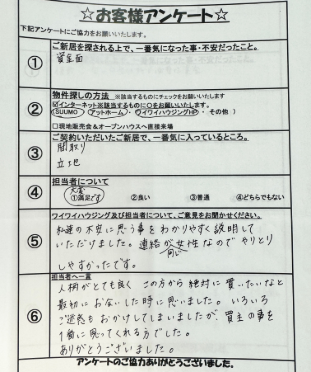 ☆お客様アンケート☆
下記アンケートにご協力をお願いいたします。
① ご新居を探される上で、一番気になった事・不安だったこと。
資金面
② 物件探しの方法 ※該当するものにチェックをお願いします
☑インターネット※該当するものに〇をお願いします。
(SUUMO・アットホーム・ワイワイハウジングHP・その他 )
□現地販売会&オープンハウスへ直接来場
③ ご契約いただいたご新居で、一番気に入っているところ。
間取り
立地
④ 担当者について
大変
①満足です ②良い ③普通 ④どちらでもない
⑤ ワイワイハウジング及び担当者について、ご意見をお聞かせください。
私達の不安に思う事をわかりやすく説明して
いただけました。連絡が女性なのでやりとり
同じ
しやすかったです。
⑥ 担当者へ一言
人柄がとても良く この方から絶対に買いたいなと
最初にお会いした時に思いました。いろいろ
ご迷惑もおかけしてしまいましたが、買主の事を
1番に思ってくれる方でした。
ありがとうございました。
アンケートのご協力ありがとうございました。